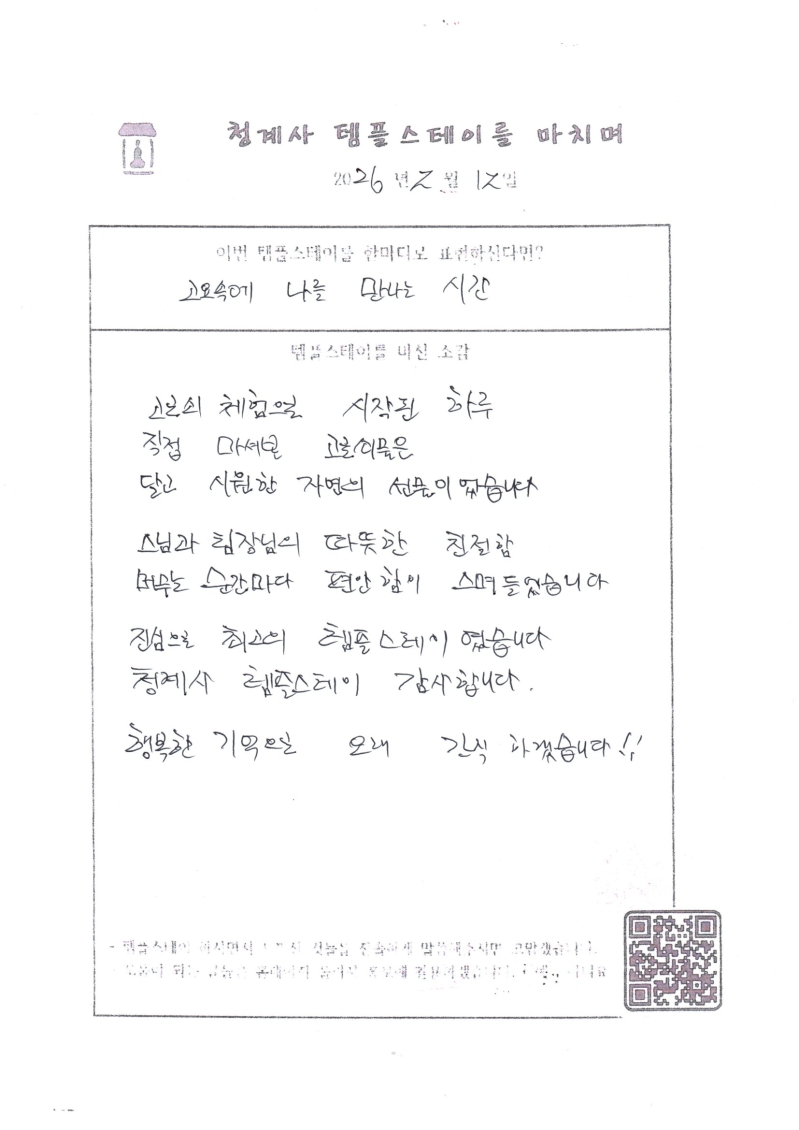 청계사 템플스테이를 마치며
2026년 2월 12일
이번 템플스테이를 한마디로 표현하신다면?
고요속에 나를 만나는 시간
템플스테이를 마친 소감
고로쇠 체험으로 시작된 하루
직접 마셔본 고로쇠물은
달고 시원한 자연의 선물이었습니다
스님과 팀장님의 따뜻한 친절함
머무는 순간마다 편안함이 스며들었습니다
진심으로 최고의 템플스테이였습니다
청계사 템플스테이 감사합니다.
행복한 기억으로 오래 간직 하겠습니다!!
- 템플스테이 하시면서 느끼신 것들을 진솔하게 말씀해주시면 고맙겠습니다.